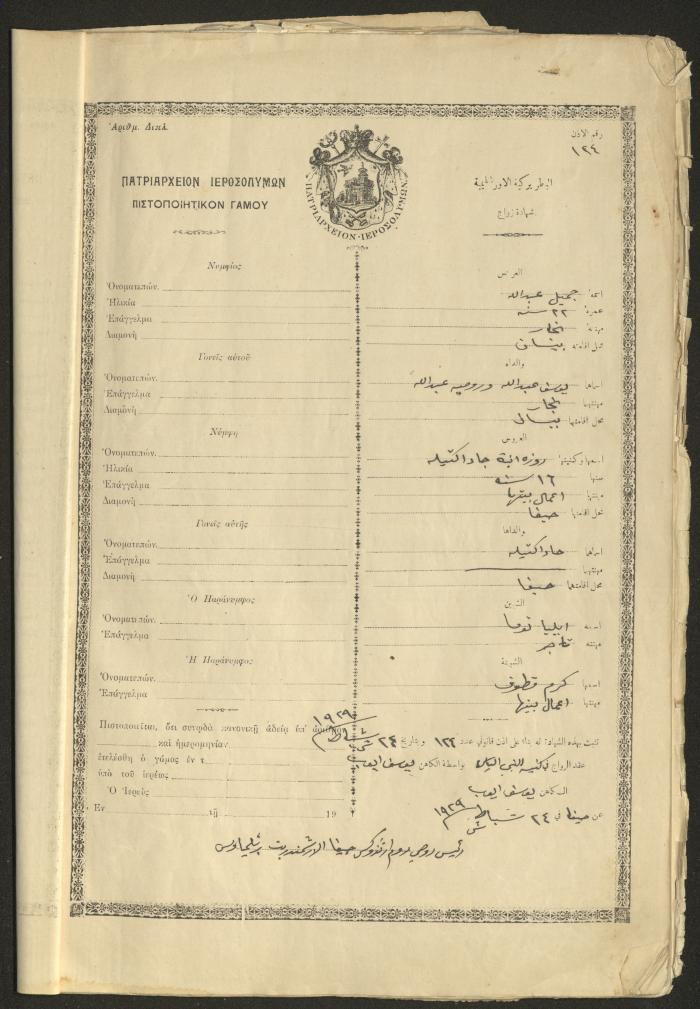 Ἀριθμ. Διπλ.
رقم الاذن
١٢٤
ΠΑΤΡΙΑΡΧΕΙΟΝ ΙΕΡΟΣΟΛΥΜΩΝ
ΠΙΣΤΟΠΟΙΗΤΙΚΟΝ ΓΑΜΟΥ
ΠΑΤΡΙΑΡΧΕΙΟΝ·ΙΕΡΟΣΟΛΥΜΩΝ
البطريركية الاورشليمية
شهادة زواج
Νυμφίος
Ὀνοματεπών.
Ἡλικία
Ἐπάγγελμα
Διαμονὴ
Γονεῖς αὐτοῦ
Ὀνοματεπών.
Ἐπάγγελμα
Διαμονὴ
Νύμφη
Ὀνοματεπών.
Ἡλικία
Ἐπάγγελμα
Διαμονὴ
Γονεῖς αὐτῆς
Ὀνοματεπών.
Ἐπάγγελμα
Διαμονὴ
Ὁ Παράνυμφος
Ὀνοματεπών.
Ἐπάγγελμα
Ἡ Παράνυμφος
Ὀνοματεπών.
Ἐπάγγελμα
Πιστοποιεῖται, ὅτι συνῳδὰ κανονικῇ ἀδείᾳ ὑπ' ἀριθμὸν
καὶ ἡμερομηνίαν
ἐτελέσθη ὁ γάμος ἐν τ
ὑπὸ τοῦ ἱερέως
Ὁ Ἱερεὺς
Ἐν τῇ 19
العريس
اسمه جميل عبدالله
عمره ٢٢ سنه
مهنته نجار
محل اقامته بيسان
والداه
اسماهما يوسف عبدالله و عبدالله
مهنتهما نجار
محل اقامتهما بيسان
العروس
اسمها وكنيتها روزه ابنة جاد
سنها ١٦ سنه
مهنتها اعمال بيتها
محل اقامتها حيفا
والداها
اسماهما جاد
مهنتهما
محل اقامتهما حيفا
الشبين
اسمه ايليا توما
مهنته تاجر
الشبينة
اسمها كرم قطوف
مهنتها اعمال بيتها
تثبت بهذه الشهادة انه بناء على اذن قانوني عدد ١٢٤ وبتاريخ ٢٤ شباط ١٩٢٩
عقد الزواج في كنيسة النبي الياس بواسطة الكاهن يوسف ايوب
الكاهن يوسف ايوب
عن حيفا في ٢٤ شباط ١٩٢٩
رئيس روحي روم ارثوذكس حيفا الارشمندريت